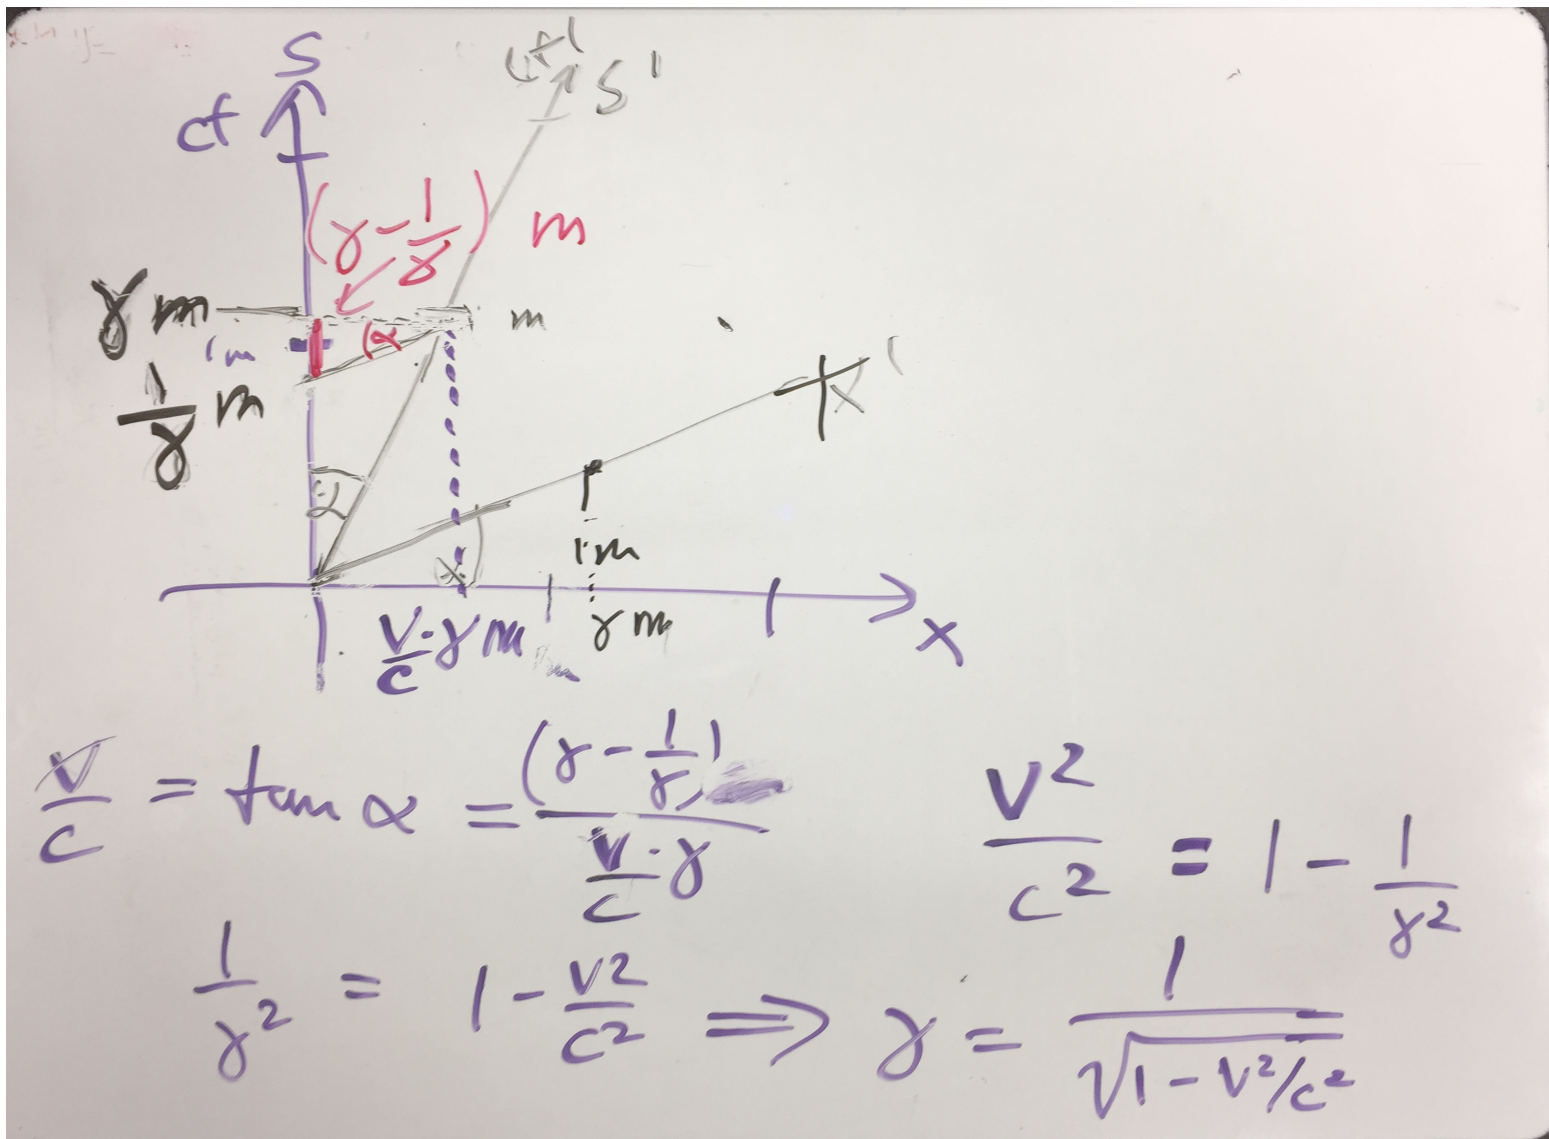 S
ct
ct'
S'
(γ - 1/γ) m
γ m
m
1m
α
1/γ m
x'
α
1m
α
v/c · γ m
1m
γ m
x
v/c = tan α = (γ - 1/γ) / (v/c · γ)
v²/c² = 1 - 1/γ²
1/γ² = 1 - v²/c² ⟹ γ = 1/√(1 - v²/c²)